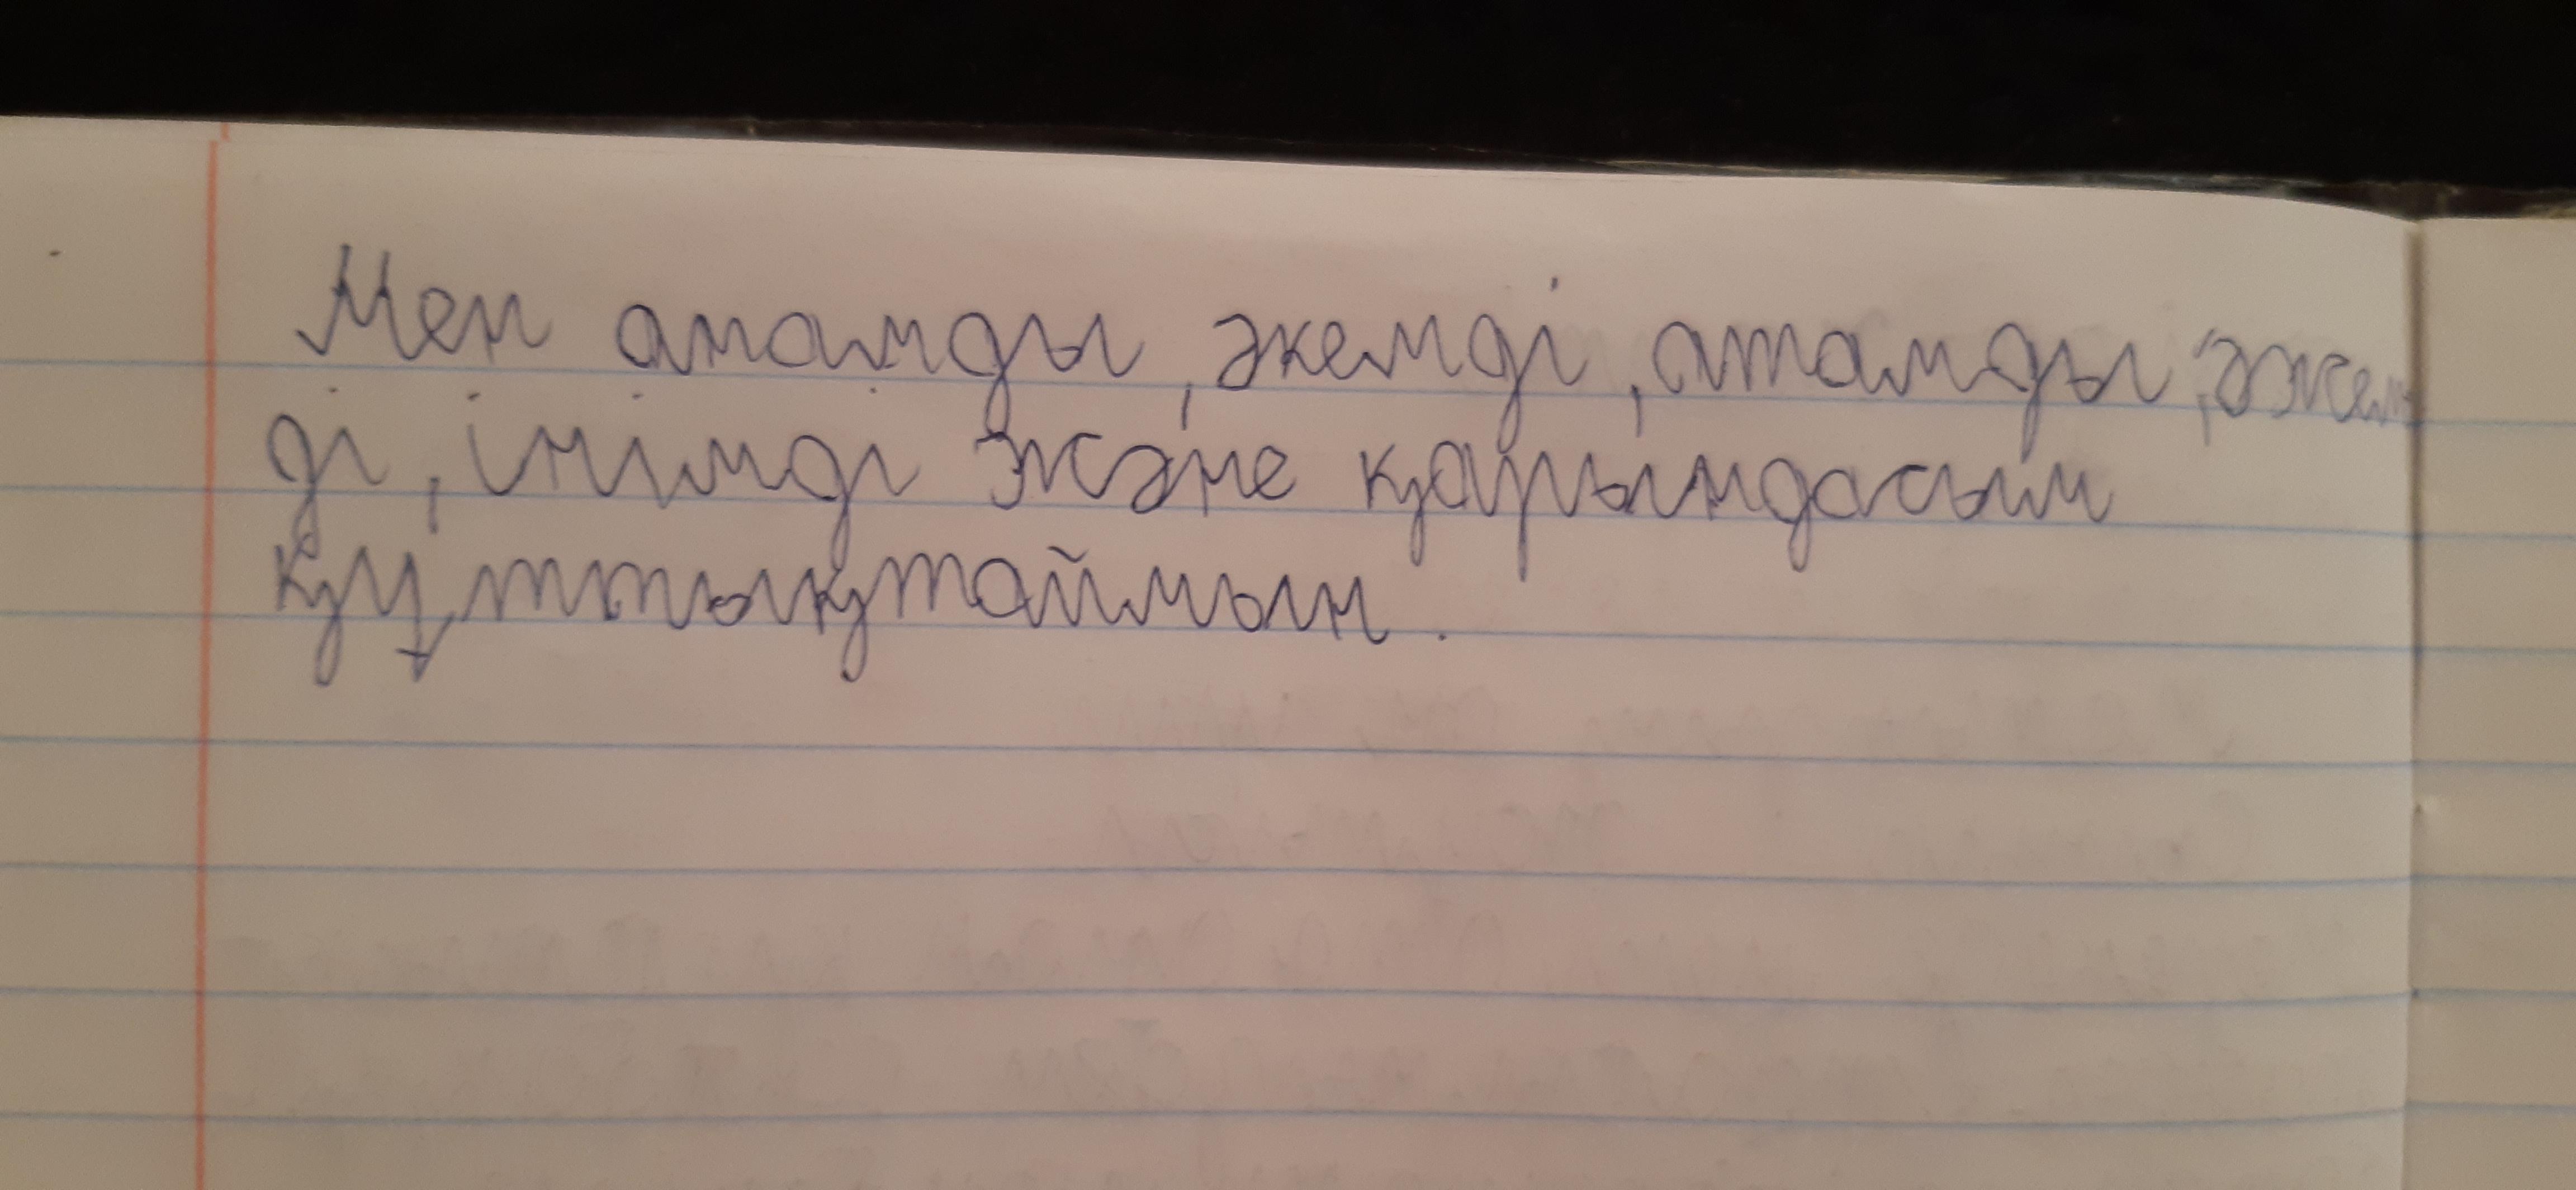 Мен анамды, әкемді, атамды, әжем
ді, інімді және қарындасым
құттықтаймын.